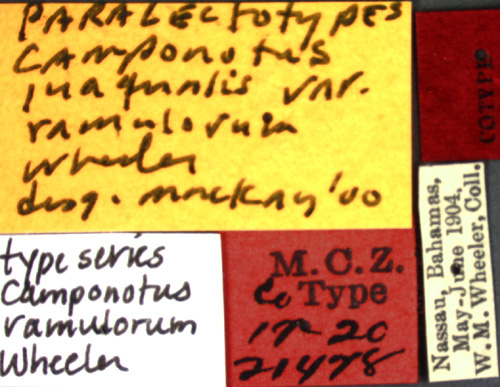 PARALECTOTYPES
Camponotus
inaqualis var.
ramulorum
Wheeler
desg. Mackay '00
COTYPE
type series
Camponotus
ramulorum
Wheeler
M.C.Z.
Co Type
17-20
21478
Nassau, Bahamas,
May-June 1904,
W. M. Wheeler, Coll.